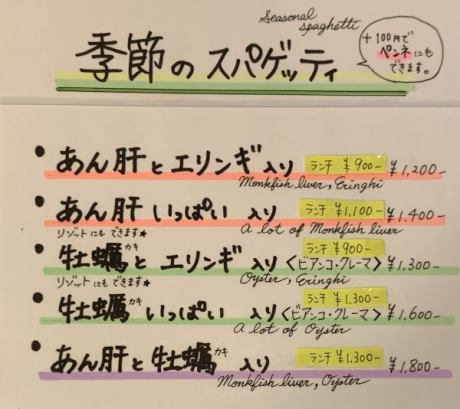 Seasonal
spaghetti
季節のスパゲッティ
+100円で
ペンネにも
できます。
• あん肝とエリンギ入り ランチ ¥900- ¥1,200-
Monkfish liver, Eringhi
• あん肝いっぱい入り ランチ ¥1,100- ¥1,400-
A lot of Monkfish liver
リゾットにもできます★
• 牡蠣カキとエリンギ入り〈ビアンコ・クレーマ〉 ランチ ¥900- ¥1,300-
Oyster, Eringhi
リゾットにもできます★
• 牡蠣カキいっぱい入り〈ビアンコ・クレーマ〉 ランチ ¥1,300- ¥1,600-
A lot of Oyster
• あん肝と牡蠣カキ入り ランチ ¥1,300- ¥1,800-
Monkfish liver, Oyster